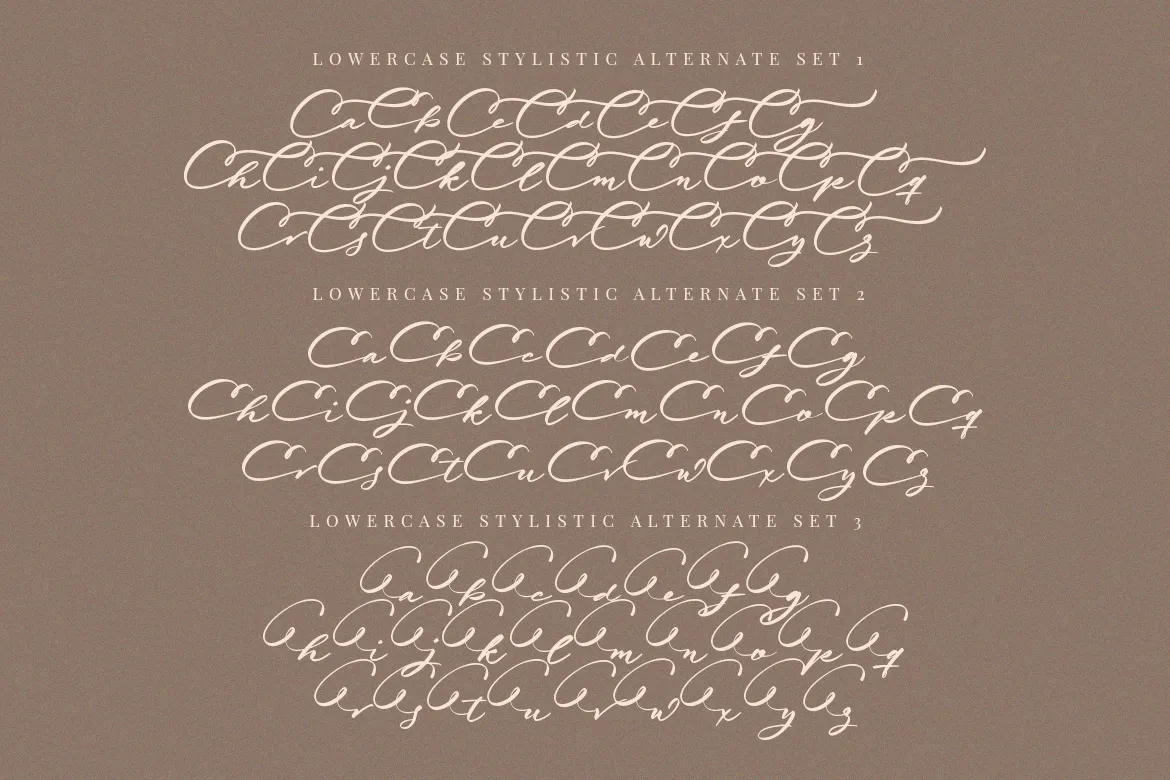 LOWERCASE STYLISTIC ALTERNATE SET 1
CaCbCcCdCeCfCg
ChCiCjCkClCmCnCoCpCq
CrCsCtCuCvCwCxCyCz
LOWERCASE STYLISTIC ALTERNATE SET 2
CaCbCcCdCeCfCg
ChCiCjCkClCmCnCoCpCq
CrCsCtCuCvCwCxCyCz
LOWERCASE STYLISTIC ALTERNATE SET 3
CaCbCcCdCeCfCg
ChCiCjCkClCmCnCoCpCq
CrCsCtCuCvCwCxCyCz